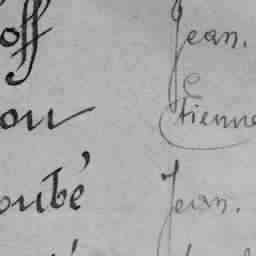 off Jean.
ou Etienne
oubé Jean.